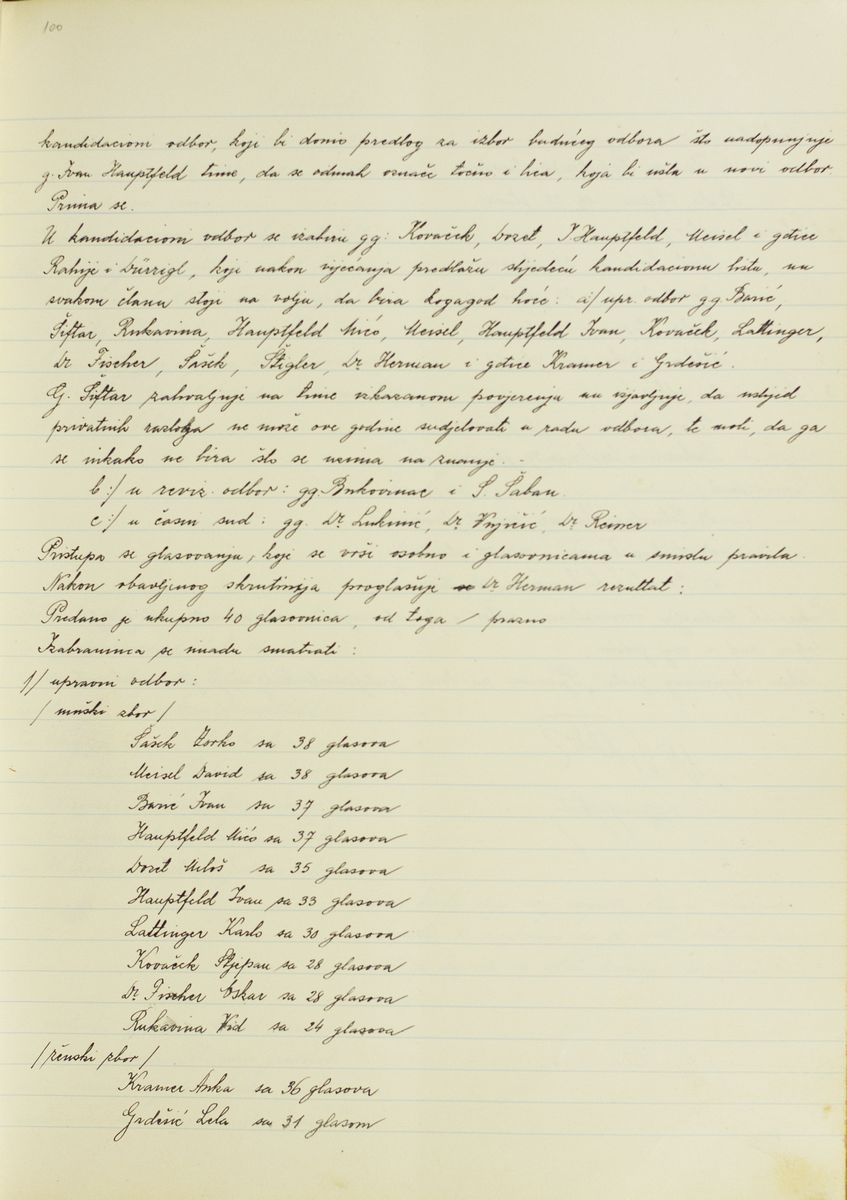 100
kandidacioni odbor, koji bi donio predlog za izbor budućeg odbora što nadopunjuje
g. Ivan Hauptfeld time, da se odmah označe točno i lica, koja bi ušla u novi odbor.
Prima se.
U kandidacioni odbor se izabiru gg: Kovaček, Dozet, I. Hauptfeld, Meisel i gdjice
Rahije i Dürrigl, koji nakon vijećanja predlažu slijedeću kandidacionu listu, no
svakom članu stoji na volju, da bira kogagod hoće: a:/ upr. odbor gg Barić,
Šiftar, Rukavina, Hauptfeld Mićo, Meisel, Hauptfeld Ivan, Kovaček, Lattinger,
Dr Fischer, Šašek, Štigler, Dr Herman i gdjice Kramer i Grdešić.
G. Šiftar zahvaljuje na time iskazanom povjerenju no izjavljuje, da uslijed
privatnih razloga ne može ove godine sudjelovati u radu odbora, te moli, da ga
se nikako ne bira što se uzima na znanje. -
b:/ u reviz. odbor: gg. Bukovinac i S. Šaban.
c:/ u časni sud: gg. Dr Lukinić, Dr Vujičić, Dr Reiner
Pristupa se glasovanju, koje se vrši osobno i glasovnicama u smislu pravila.
Nakon obavljenog skrutinija proglašuje Dr Herman rezultat:
Predano je ukupno 40 glasovnica, od toga / prazno
Izabranima se imadu smatrati:
1/ upravni odbor:
/ muški zbor /
Šašek Zorko sa 38 glasova
Meisel David sa 38 glasova
Barić Ivan sa 37 glasova
Hauptfeld Mićo sa 37 glasova
Dozet Miloš sa 35 glasova
Hauptfeld Ivan sa 33 glasova
Lattinger Karlo sa 30 glasova
Kovaček Stjepan sa 28 glasova
Dr Fischer Oskar sa 28 glasova
Rukavina Vid sa 24 glasova
/ ženski zbor /
Kramer Anka sa 36 glasova
Grdešić Lela sa 31 glasom